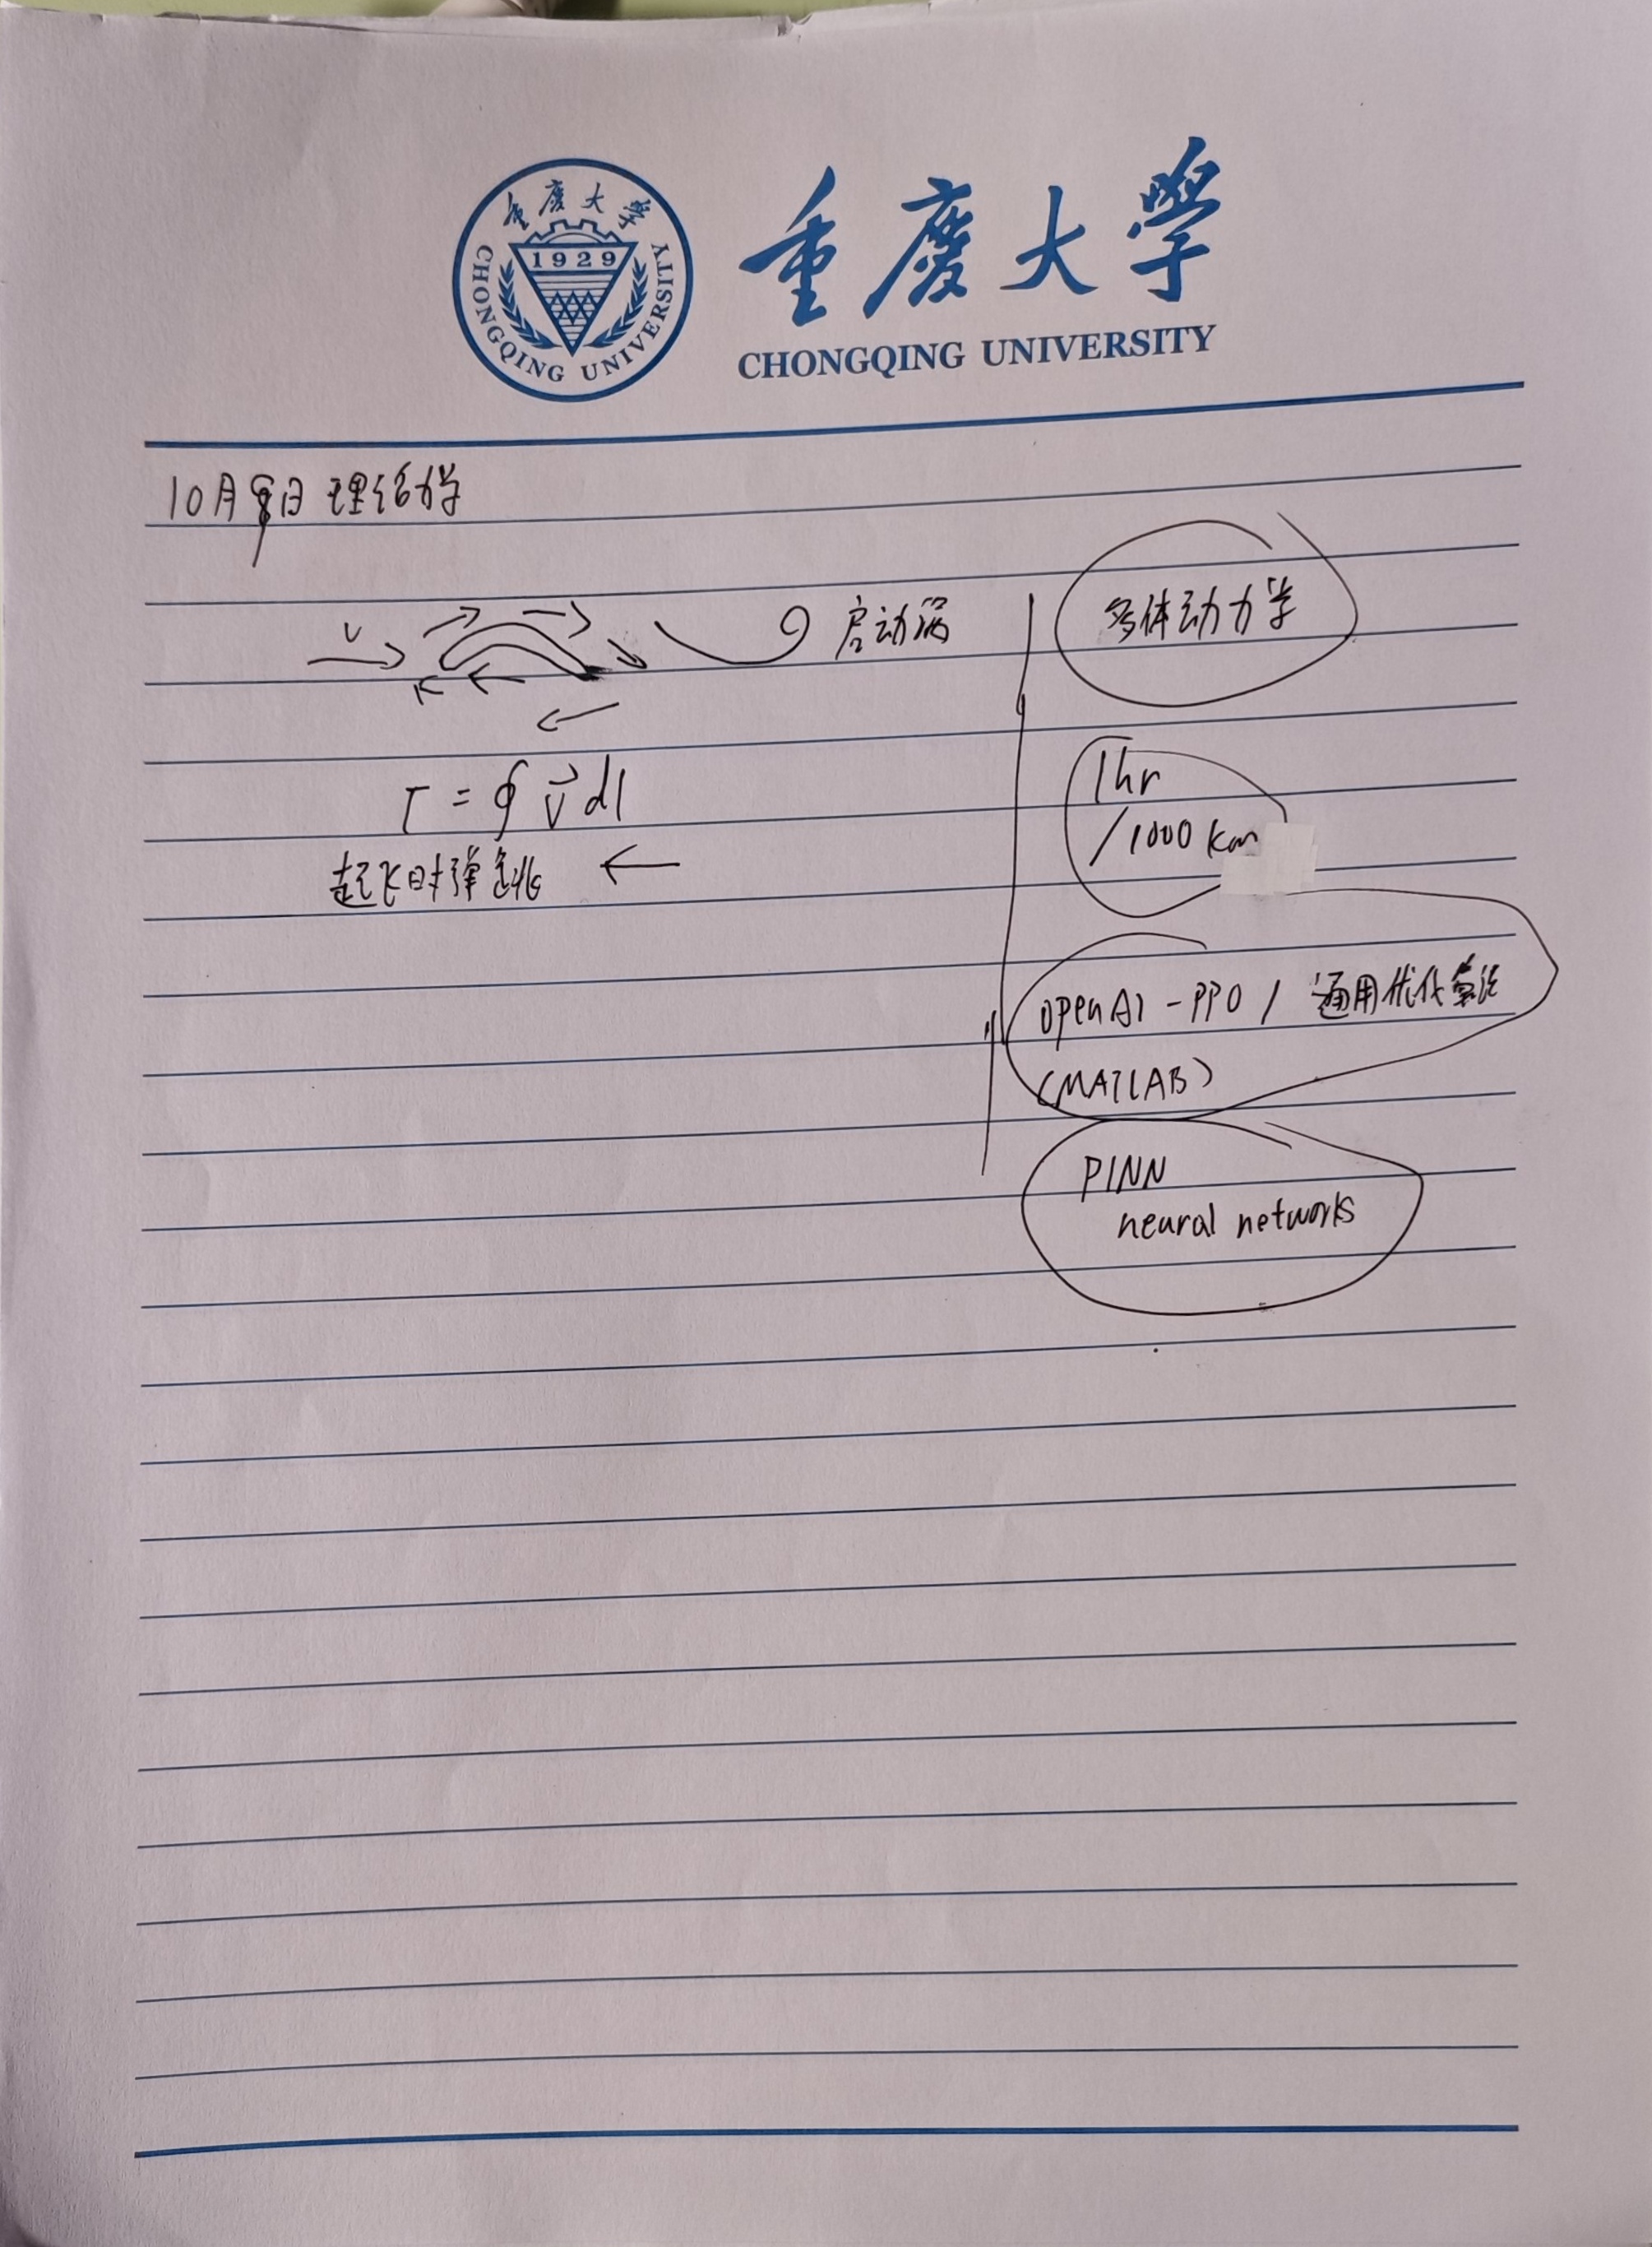 重慶大學
CHONGQING UNIVERSITY
1929
重慶大學
CHONGQING UNIVERSITY
10月9日 理论力学
V
启动涡
Γ = ∮ v⃗ dl
起飞时弹跳
多体动力学
1hr
/1000 km
OpenAI - PPO / 通用优化算法
(MATLAB)
PINN
neural networks